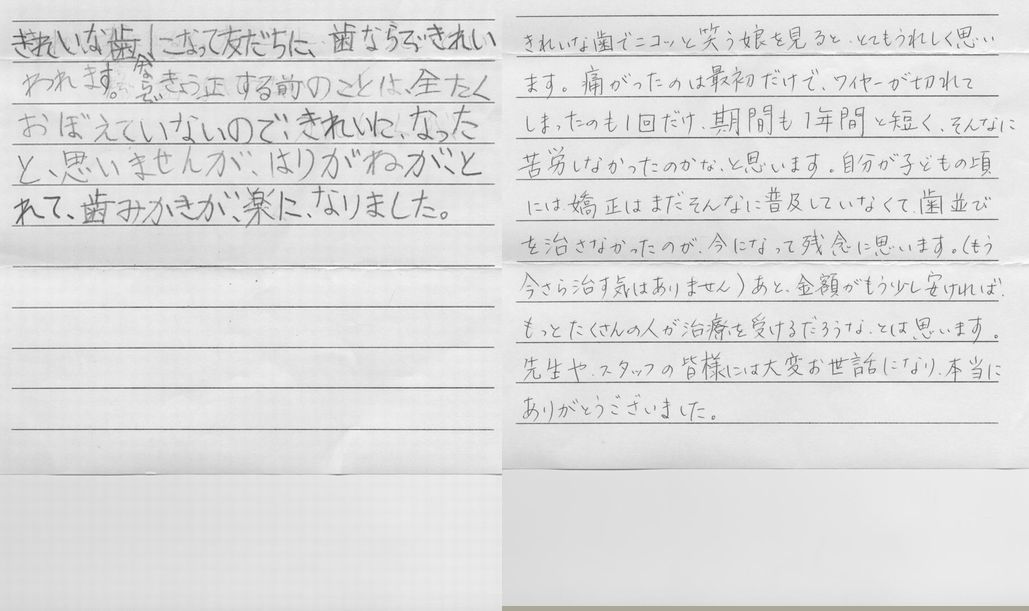 きれいな歯にこなって友だちに、歯ならびきれい
われます。歯ならびきょう正する前のことは、全たく
おぼえていないので、きれいに、なった
と、思いませんが、はりがねが、と
れて、歯みかきが、楽に、なりました。
きれいな歯でニコッと笑う娘を見ると、とてもうれしく思い
ます。痛がったのは最初だけで、ワイヤーが切れて
しまったのも1回だけ、期間も1年間と短く、そんなに
苦労しなかったのかな、と思います。自分が子どもの頃
には、矯正はまだそんなに普及していなくて、歯並び
を治さなかったのが、今になって残念に思います。(もう
今さら治す気はありません)あと、金額がもう少し安ければ、
もっとたくさんの人が治療を受けるだろうな、とは思います。
先生や、スタッフの皆様には大変お世話になり、本当に
ありがとうございました。